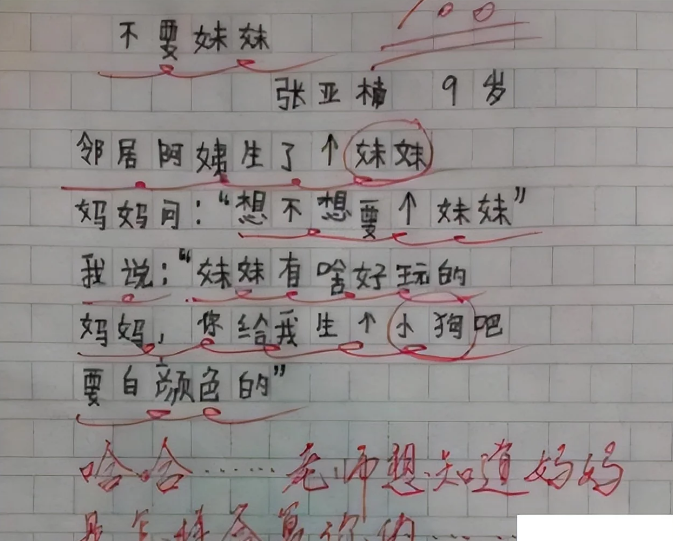 100
不要妹妹
张亚楠 9岁
邻居阿姨生了个妹妹
妈妈问：“想不想要个妹妹”
我说：“妹妹有啥好玩的
妈妈，你给我生个小狗吧
要白颜色的”
哈哈……老师想知道妈妈
是怎样答复你的……